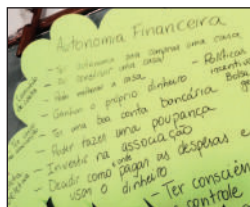 Autonomia Financeira
- Ter autonomia para comprar uma casa
ou construir uma casa!
- Poder melhorar a casa
- Ganhar o próprio dinheiro
- Ter uma boa conta bancária
- Poder fazer uma poupança
- Investir na associação
- Decidir como pagar as despesas e
onde
usar o dinheiro
- Políticas
incentivo
Bolsa
- Ter consciên
controle